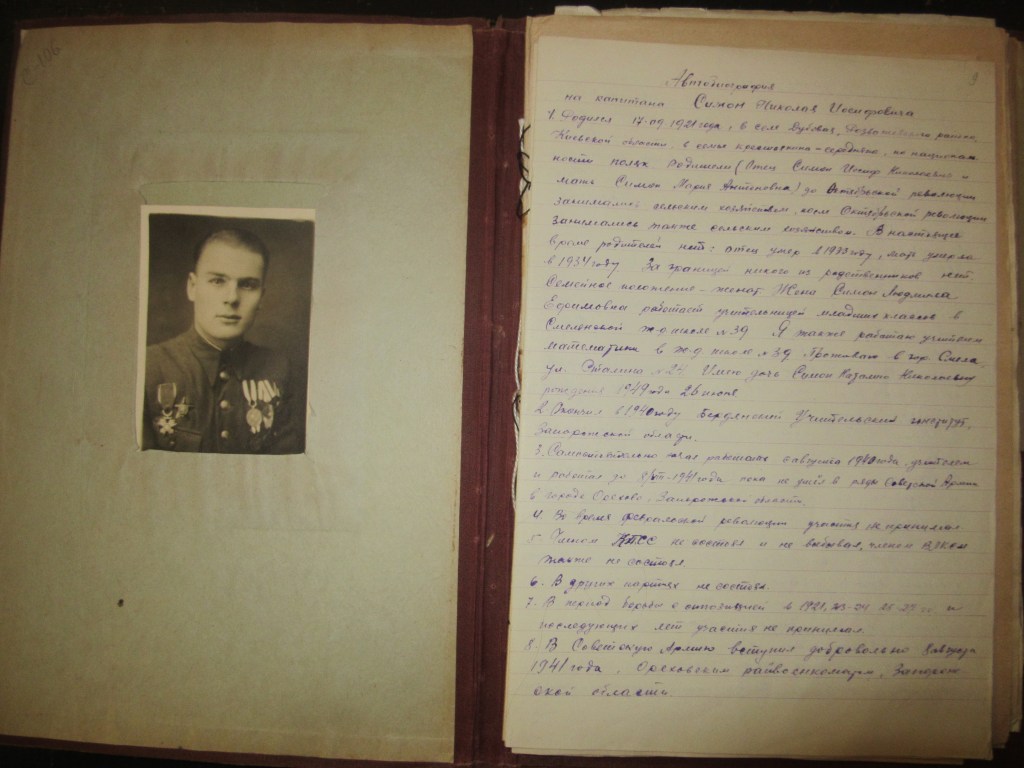 С-106
9
Автобиография
на капитана Симон Николая Иосифовича
1. Родился 17-09-1921 года, в селе Дубовая, района,
Киевской области, в семье крестьянина-середняка, по национал
ности поляк Родители (Отец Симон Иосиф Николаевич и
мать Симон Мария Антоновна) до Октябрьской революции
занимались сельским хозяйством, после Октябрьской революции
занимались также сельским хозяйством. В настоящее
время родителей нет: отец умер в году, мать умерла
в 1934 году За границей никого из родственников нет
Семейное положение - женат Жена Симон Людмила
Ефимовна работает учительницей младших классов в
ж-д школе №39 Я также работаю учителем
математики в ж-д школе №39 Проживаю в гор Смела
ул. Сталина №24 Имею дочь Симон Николаевну
рождения 1949 года 26 июня
2. Окончил в 1940 году Бердянский Учительский институт,
Запорожской области.
3. Самостоятельно начал работать 6 августа 1940 года учителем
и работал до 1941 года пока не ушёл в ряды Советской Армии
в городе Орехово, Запорожской области.
4. Во время февральской революции участия не принимал.
5. Членом КПСС не состоял и не выбывал, членом ВЛКСМ
также не состоял.
6. В других партиях не состоял.
7. В период борьбы с оппозицией в 1921, 23-24 25-27 гг и
последующих лет участия не принимал.
8. В Советскую Армию вступил добровольно 8 августа
1941 года, Ореховским райвоенкоматом, Запорож
ской области.